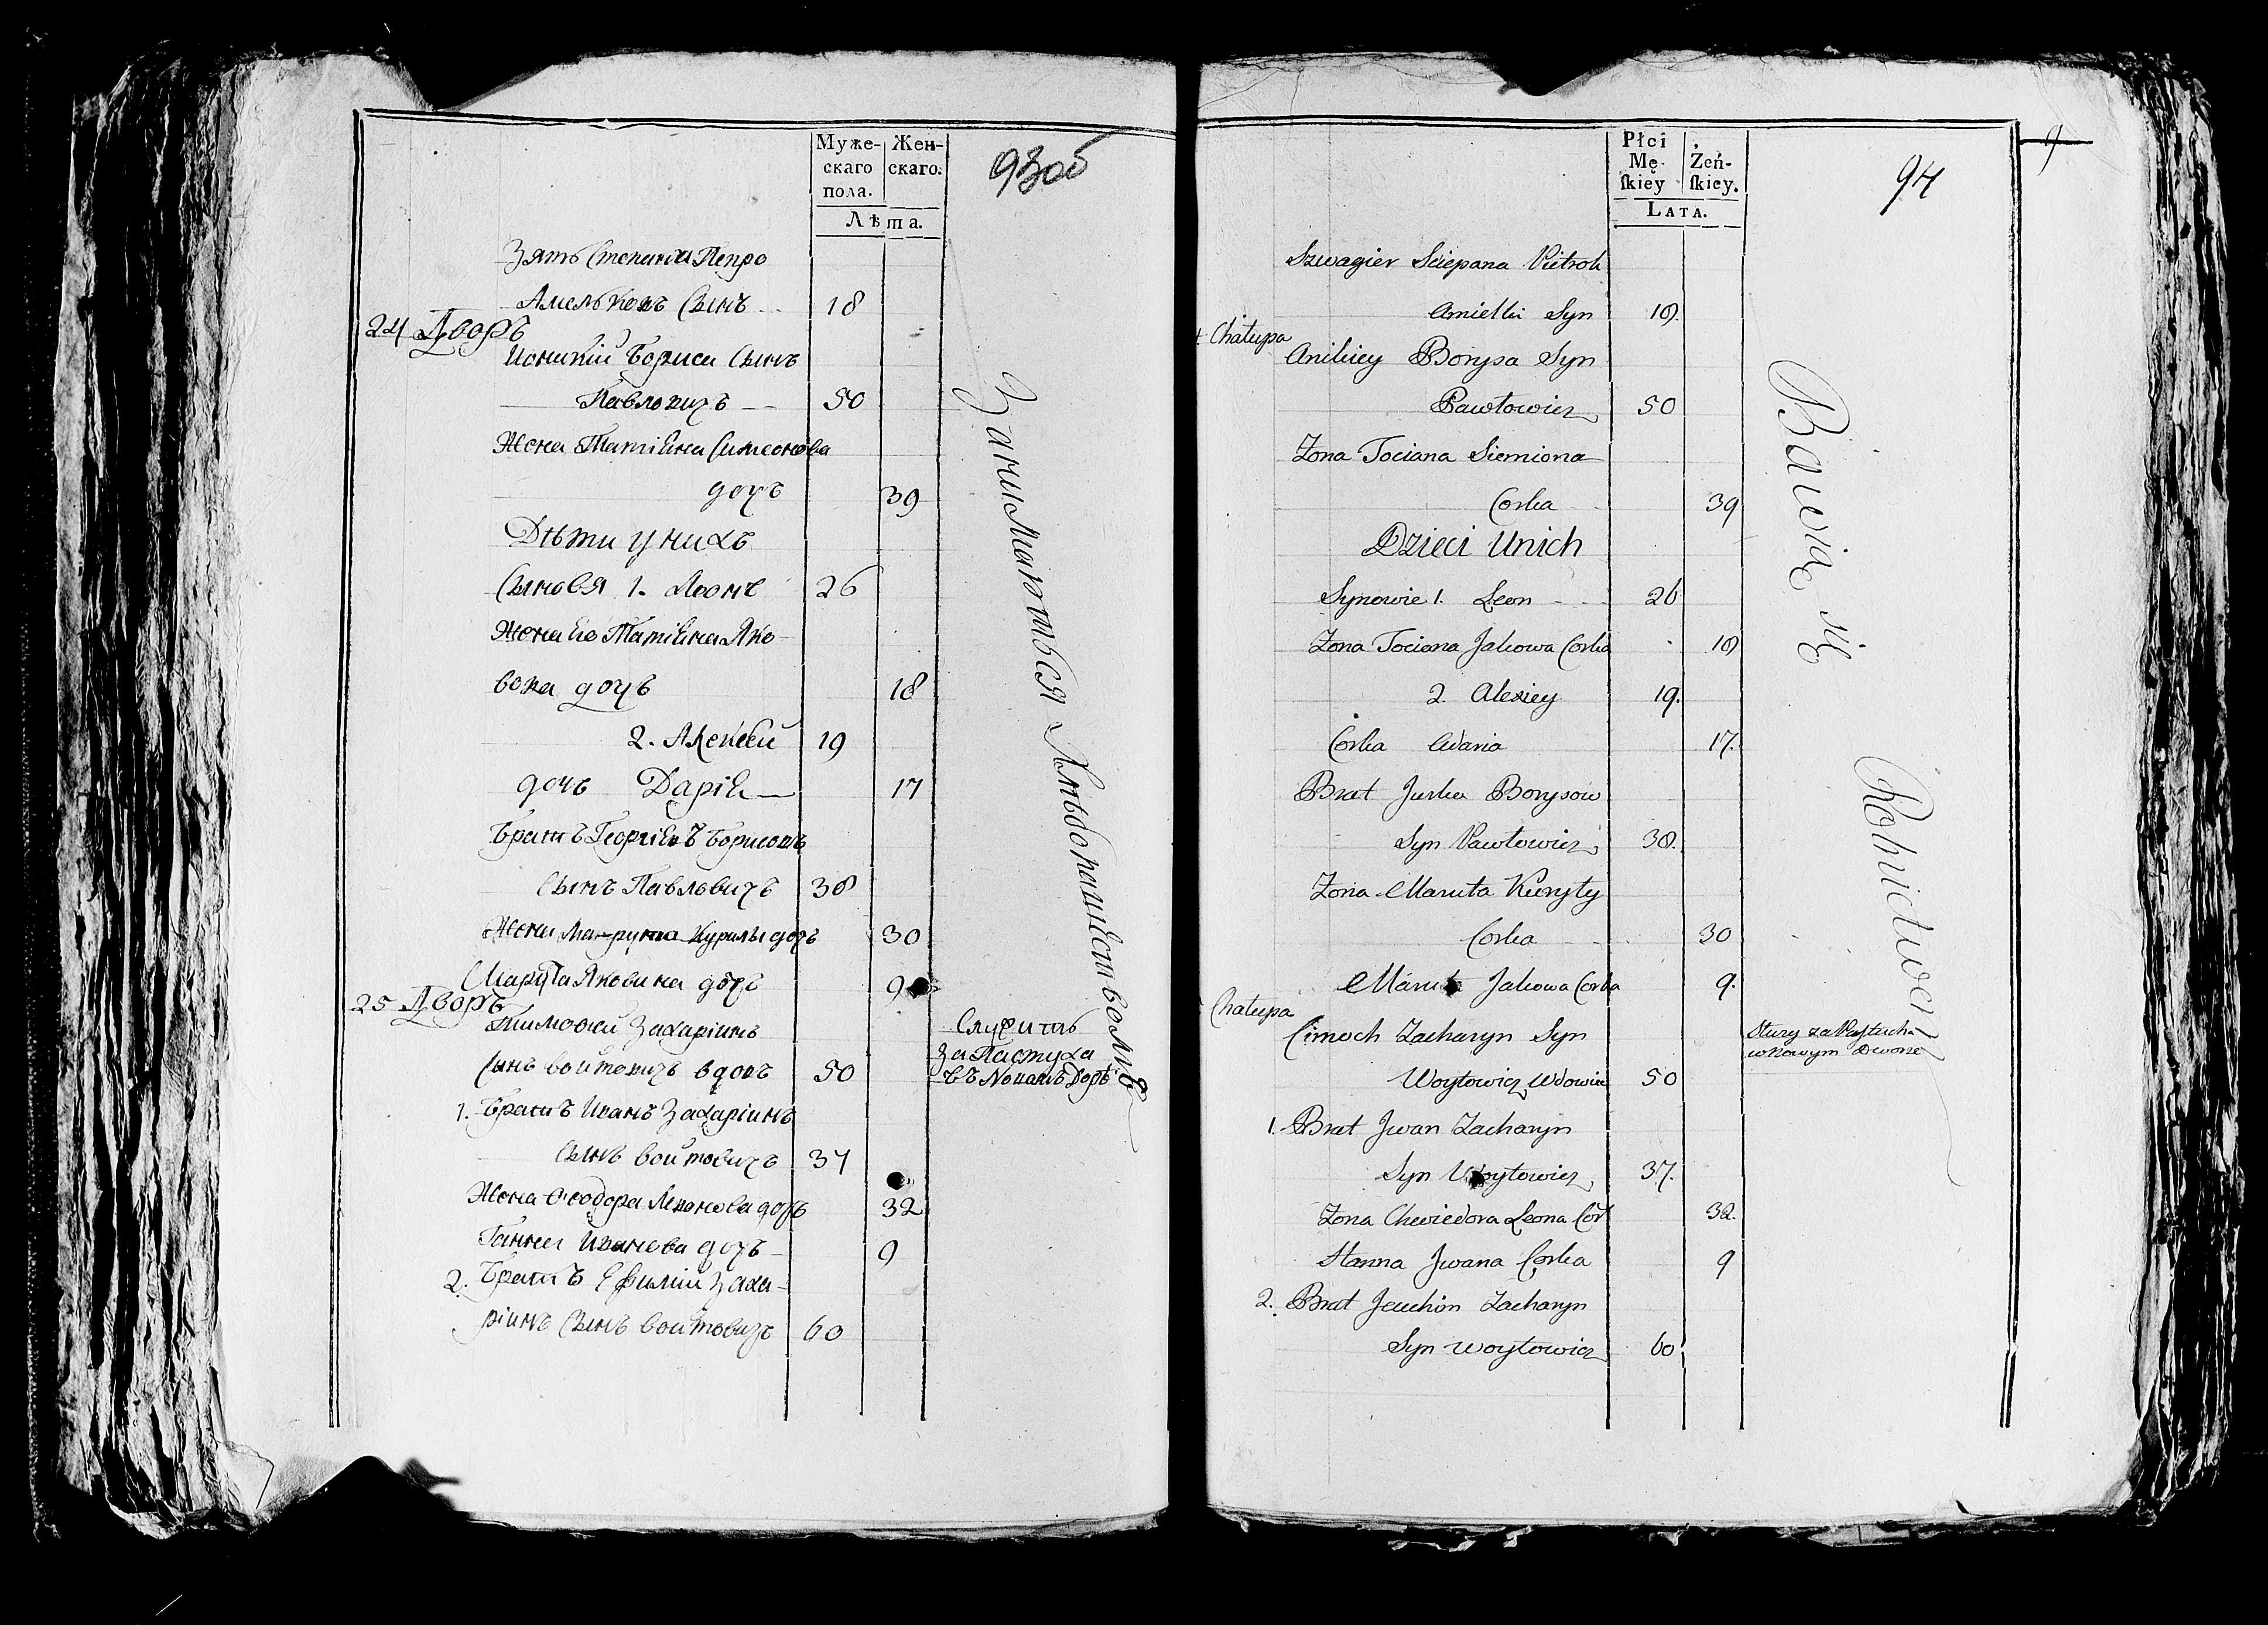 Муже-
скаго
пола.
Жен-
скаго.
Лѣта.
93об
Зять Степана Петро
Амельковъ Сынъ 18
24 Дворъ
Іоникій Бориса Сынъ
Павловичъ 50
Жена Татіяна Симеонова
дочъ 39
Дѣти у нихъ
Сыновя 1. Леонъ 26
Жена Его Татіяна Яко-
вова дочъ 18
2. Алексѣй 19
дочъ Дарія 17
Братъ Георгіевъ Борисовъ
Сынъ Павловичъ 38
Жена Марута Курилы дочъ 30
Марута Яковива дочъ 9
25 Дворъ
Тимофей Захаріинъ
Сынъ Войтовичъ вдовъ 50
1. Братъ Иванъ Захаріинъ
Сынъ Войтовичъ 37
Жена Ѳеодора Леонова дочъ 32
Ганна Иванова дочъ 9
2. Братъ Ефимій Заха-
ріинъ Сынъ Войтовичъ 60
Занимаються Хлѣбопашествомъ
Служитъ
за Пастуха
въ Новомъ Дворѣ
Płci
Mę-
ſkiey
Żeń-
ſkiey.
LATA.
94
9
Szwagier Sciepana Pietrok
Amielki Syn 18.
Chałupa
Anikiey Borysa Syn
Pawłowicz 50
Zona Tociana Siemiona
Corka 39
Dzieci Unich
Synowie 1. Leon 26
Zona Tociana Jakowa Corka 18
2. Alexiey 19.
Corka Adaria 17.
Brat Jurka Borysow
Syn Pawłowicz 38.
Zona Maruta Kuryły
Corka 30
Maruta Jakowa Corka 9.
Chałupa
Cimoch Zacharyn Syn
Woytowicz Wdowiec 50
1. Brat Jwan Zacharyn
Syn Woytowicz 37.
Zona Chwiedora Leona Cor 32.
Hanna Jwana Corka 9
2. Brat Jauchim Zacharyn
Syn Woytowicz 60
Bawią się Rolnictwem
Służy za Pastucha
w Nowym Dworze